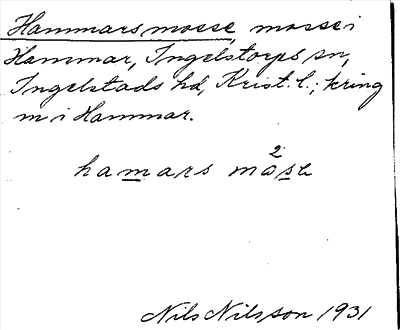 Hammars mosse, mosse i
Hammar, Ingelstorps sn,
Ingelstads hd, Krist. l.; kring
m i Hammar.
2
hamars måse
Nils Nilsson 1931